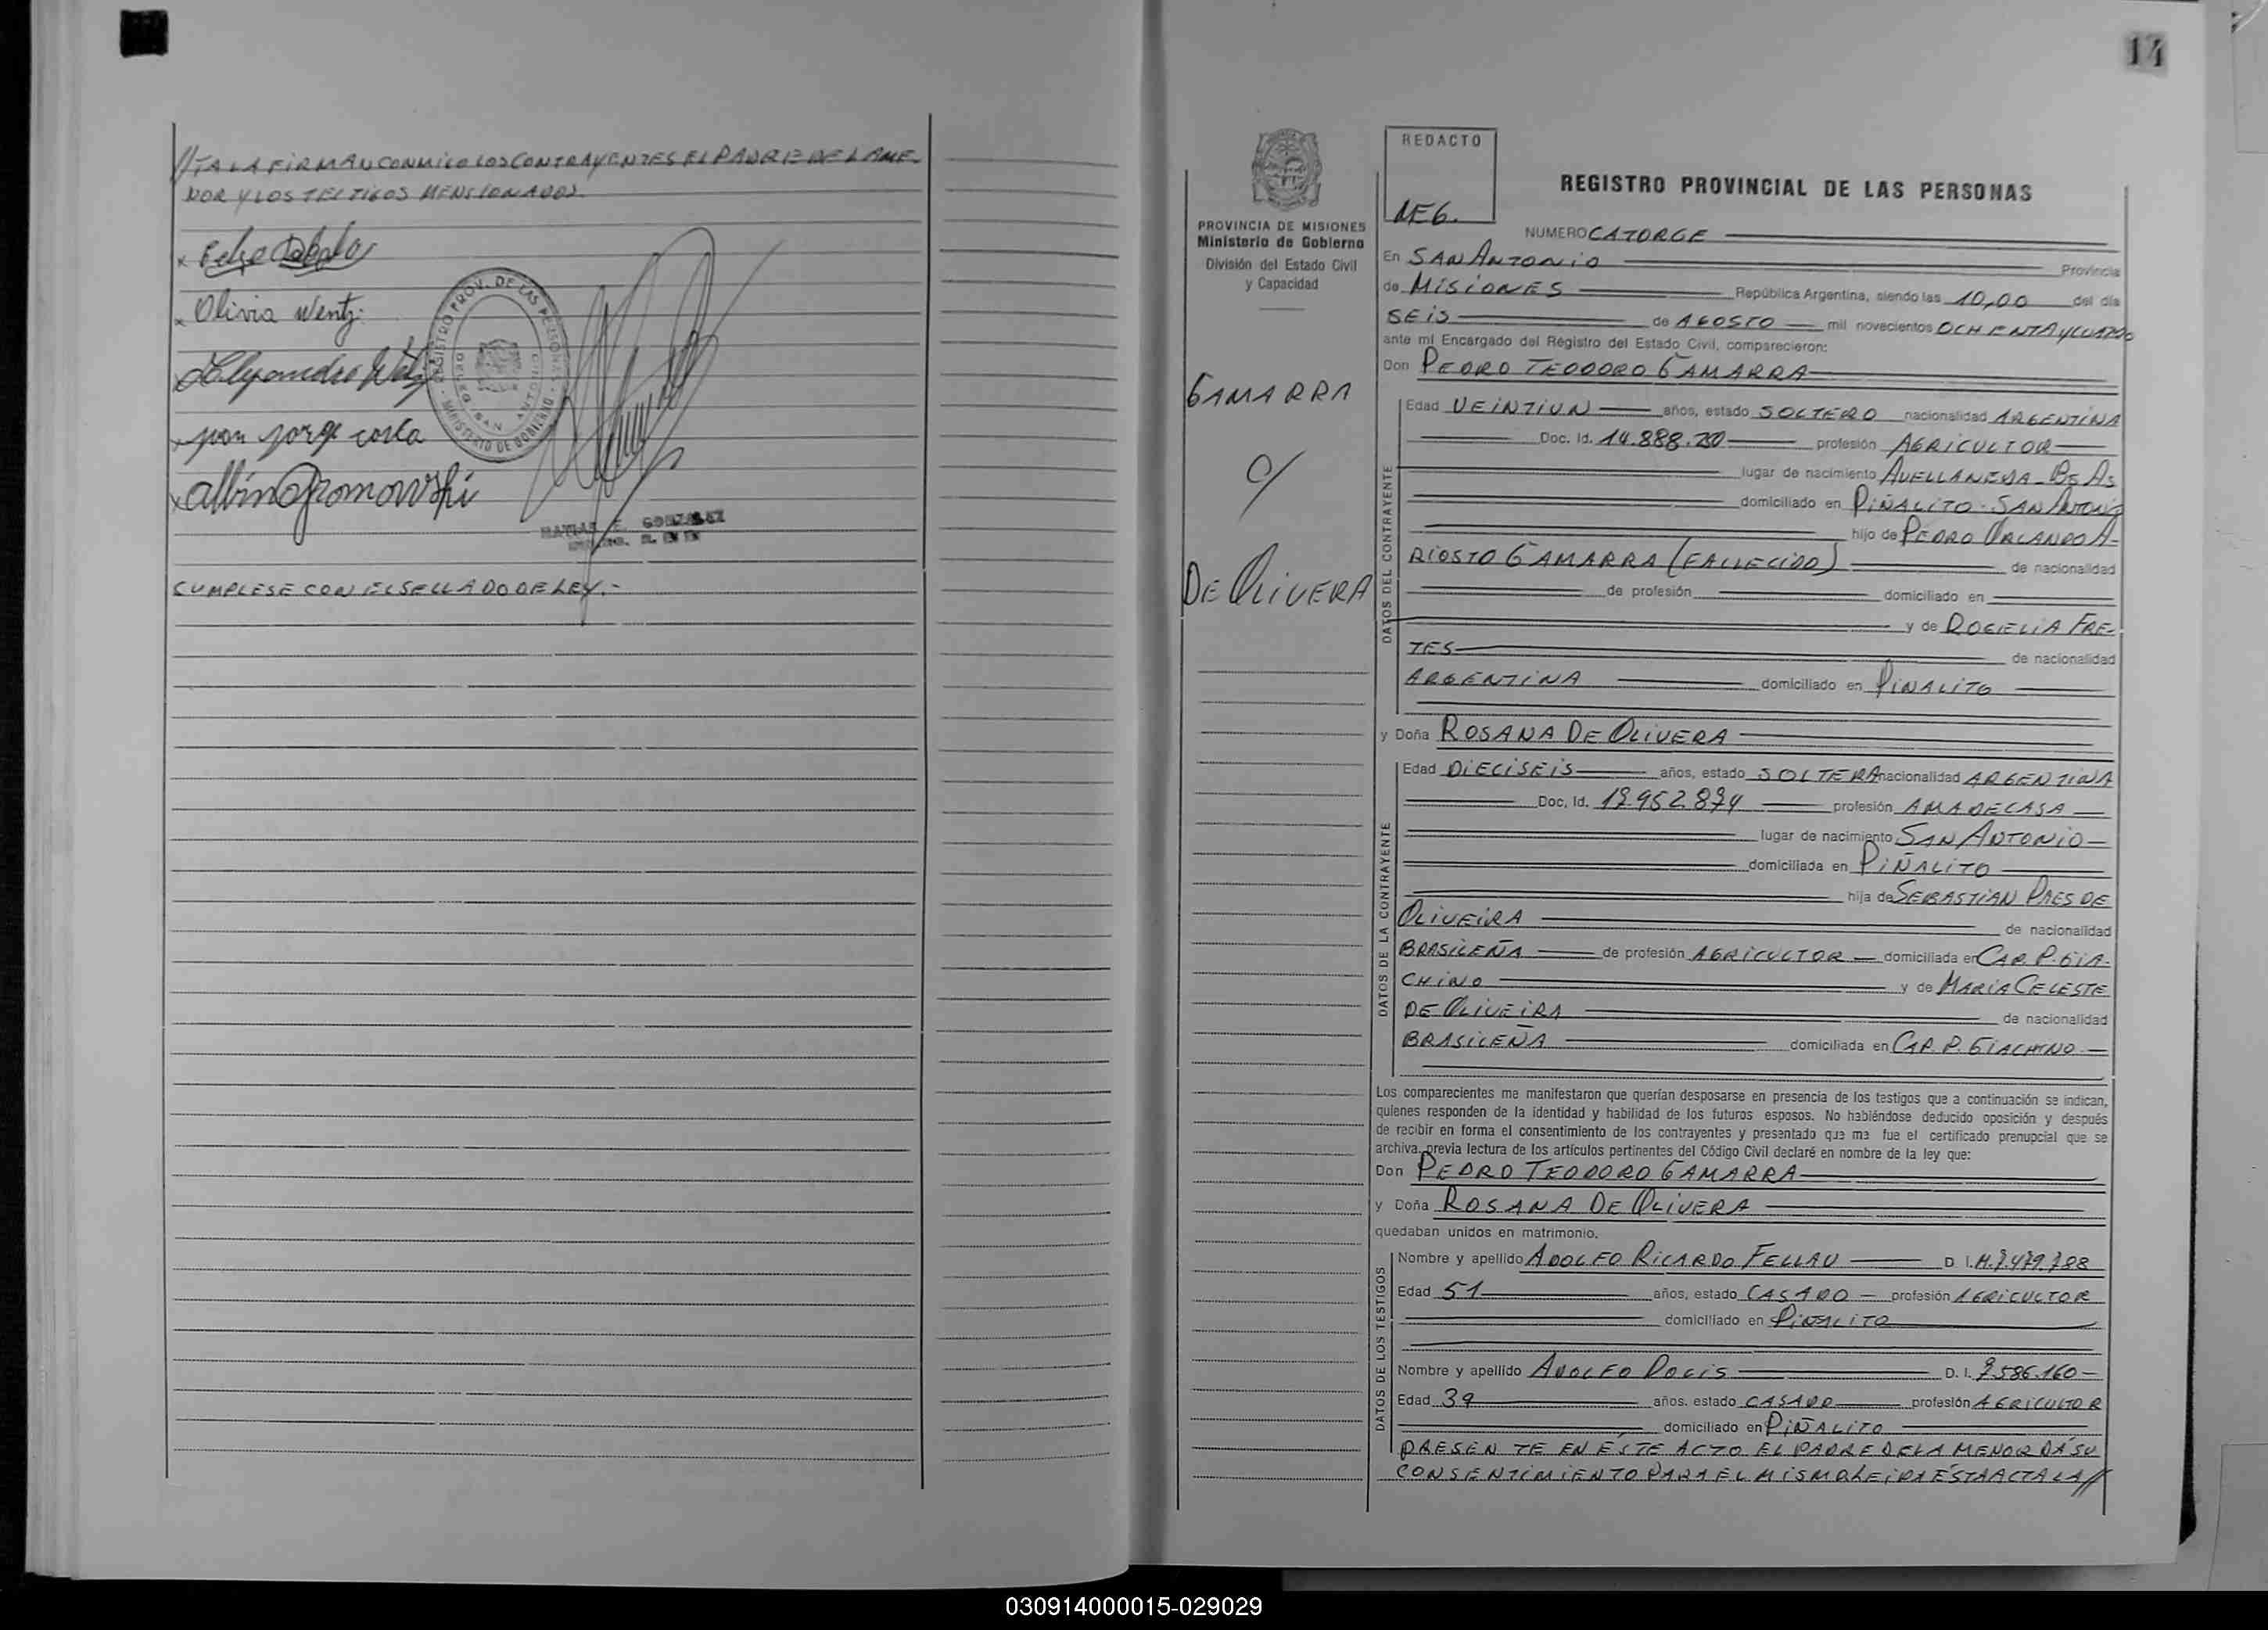 //TA LA FIRMAN CONMIGO LOS CONTRAYENTES EL PADRE DE LA ME-
NOR Y LOS TESTIGOS MENSIONADOS
x
x Olivia Wentz.
Alejandro
x juan jorge costa
x albino Gromowski
REGISTRO PROV. DE LAS PERSONAS
MINISTERIO DE GOBIERNO
SAN ANTONIO
GONZALEZ
CUMPLESE CON EL SELLADO DE LEY.-
14
PROVINCIA DE MISIONES
Ministerio de Gobierno
División del Estado Civil
y Capacidad
GAMARRA
c/
DE OLIVERA
REDACTO
MEG.
REGISTRO PROVINCIAL DE LAS PERSONAS
NUMERO CATORCE
En SAN ANTONIO Provincia
de MISIONES República Argentina, siendo las 10,00 del día
SEIS de AGOSTO mil novecientos OCHENTA Y CUATRO
ante mí Encargado del Registro del Estado Civil, comparecieron:
Don PEDRO TEODORO GAMARRA
DATOS DEL CONTRAYENTE
Edad VEINTIUN años, estado SOLTERO nacionalidad ARGENTINA
Doc. Id. 14.888.280 profesión AGRICULTOR
lugar de nacimiento AVELLANEDA - Bs As
domiciliado en PIÑALITO - SAN ANTONIO
hijo de PEDRO ORLANDO A-
RIOSTO GAMARRA (FALLECIDO) de nacionalidad
de profesión domiciliado en
y de ROGELIA FRE-
TES de nacionalidad
ARGENTINA domiciliado en PIÑALITO
y Doña ROSANA DE OLIVERA
DATOS DE LA CONTRAYENTE
Edad DIECISEIS años, estado SOLTERA nacionalidad ARGENTINA
Doc. Id. 19.952.874 profesión AMA DE CASA
lugar de nacimiento SAN ANTONIO
domiciliada en PIÑALITO
hija de SEBASTIAN PAES DE
OLIVEIRA de nacionalidad
BRASILEÑA de profesión AGRICULTOR domiciliada en CAP. P. GIA-
CHINO y de MARIA CELESTE
DE OLIVEIRA de nacionalidad
BRASILEÑA domiciliada en CAP. P. GIACHINO
Los comparecientes me manifestaron que querían desposarse en presencia de los testigos que a continuación se indican,
quienes responden de la identidad y habilidad de los futuros esposos. No habiéndose deducido oposición y después
de recibir en forma el consentimiento de los contrayentes y presentado que me fue el certificado prenupcial que se
archiva, previa lectura de los artículos pertinentes del Código Civil declaré en nombre de la ley que:
Don PEDRO TEODORO GAMARRA
y Doña ROSANA DE OLIVERA
quedaban unidos en matrimonio.
DATOS DE LOS TESTIGOS
Nombre y apellido ADOLFO RICARDO FELLAU D. I. M.7.479.788
Edad 51 años, estado CASADO profesión AGRICULTOR
domiciliado en PIÑALITO
Nombre y apellido ADOLFO DOCIS D. I. 7.586.160
Edad 39 años. estado CASADO profesión AGRICULTOR
domiciliado en PIÑALITO
PRESENTE EN ÉSTE ACTO EL PADRE DE LA MENOR DÁ SU
CONSENTIMIENTO PARA EL MISMO LEIDA ÉSTA ACTA LA//
030914000015-029029